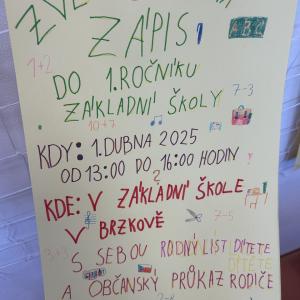 ZÁPIS
ABC
1+2
DO 1. ROČNÍKU
ZÁKLADNÍ ŠKOLY
7-3
10+7
KDY: 1. DUBNA 2025
OD 13:00 DO 16:00 HODIN
KDE: V ZÁKLADNÍ ŠKOLE
V BRZKOVĚ
7-5
3+3
S SEBOU RODNÝ LIST DÍTĚTE
DÍTĚTE
A OBČANSKÝ PRŮKAZ RODIČE